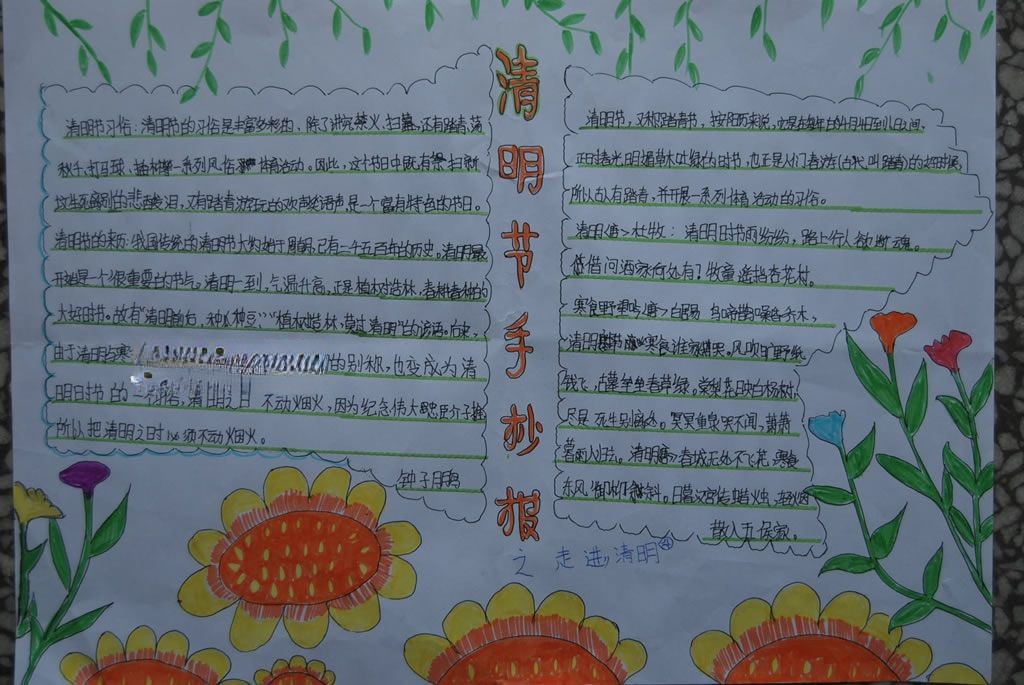 清明节手抄报
之走进清明
清明节习俗:清明节的习俗是丰富多彩的,除了讲究禁火、扫墓,还有踏青、荡
秋千、打马球、插柳等一系列风俗体育活动。因此,这个节日中既有祭扫新
坟生死离别的悲酸泪,又有踏青游玩的欢声笑语声,是一个富有特色的节日。
清明节的来历:我国传统的清明节大约始于周朝,已有二千五百年的历史。清明最
开始是一个很重要的节气,清明一到,气温升高,正是植树造林,春耕春种的
大好时节。故有“清明前后,种瓜种豆”、“植树造林,莫过清明”的谚语。后来,
由于清明与寒 的别称,也变成为清
明时节的一 习俗,清明之日 不动烟火,因为纪念伟大忠臣介子推
所以把清明之时 须不动烟火。
钟子月鹃
清明节,又称踏青节,按阳历来说,它是在每年的4月4日到6日之间,
正时春光明媚草木吐绿的时节,也正是人们春游(古代叫踏青)的好时候,
所以古有踏青,并开展一系列体育活动的习俗。
清明<唐>杜牧:清明时节雨纷纷,路上行人欲断魂。
借问酒家何处有?牧童遥指杏花村。
寒食野望吟<唐>白居易 乌啼鹊噪昏乔木,
清明 寒食谁家哭。风吹旷野纸
钱飞,古墓垒垒春草绿。棠梨花映白杨树,
尽是死生别离处。冥冥重泉哭不闻,萧萧
暮雨人归去。清明<唐>春城无处不飞花,寒食
东风御柳斜。日暮汉宫传蜡烛,轻烟
散入五侯家。